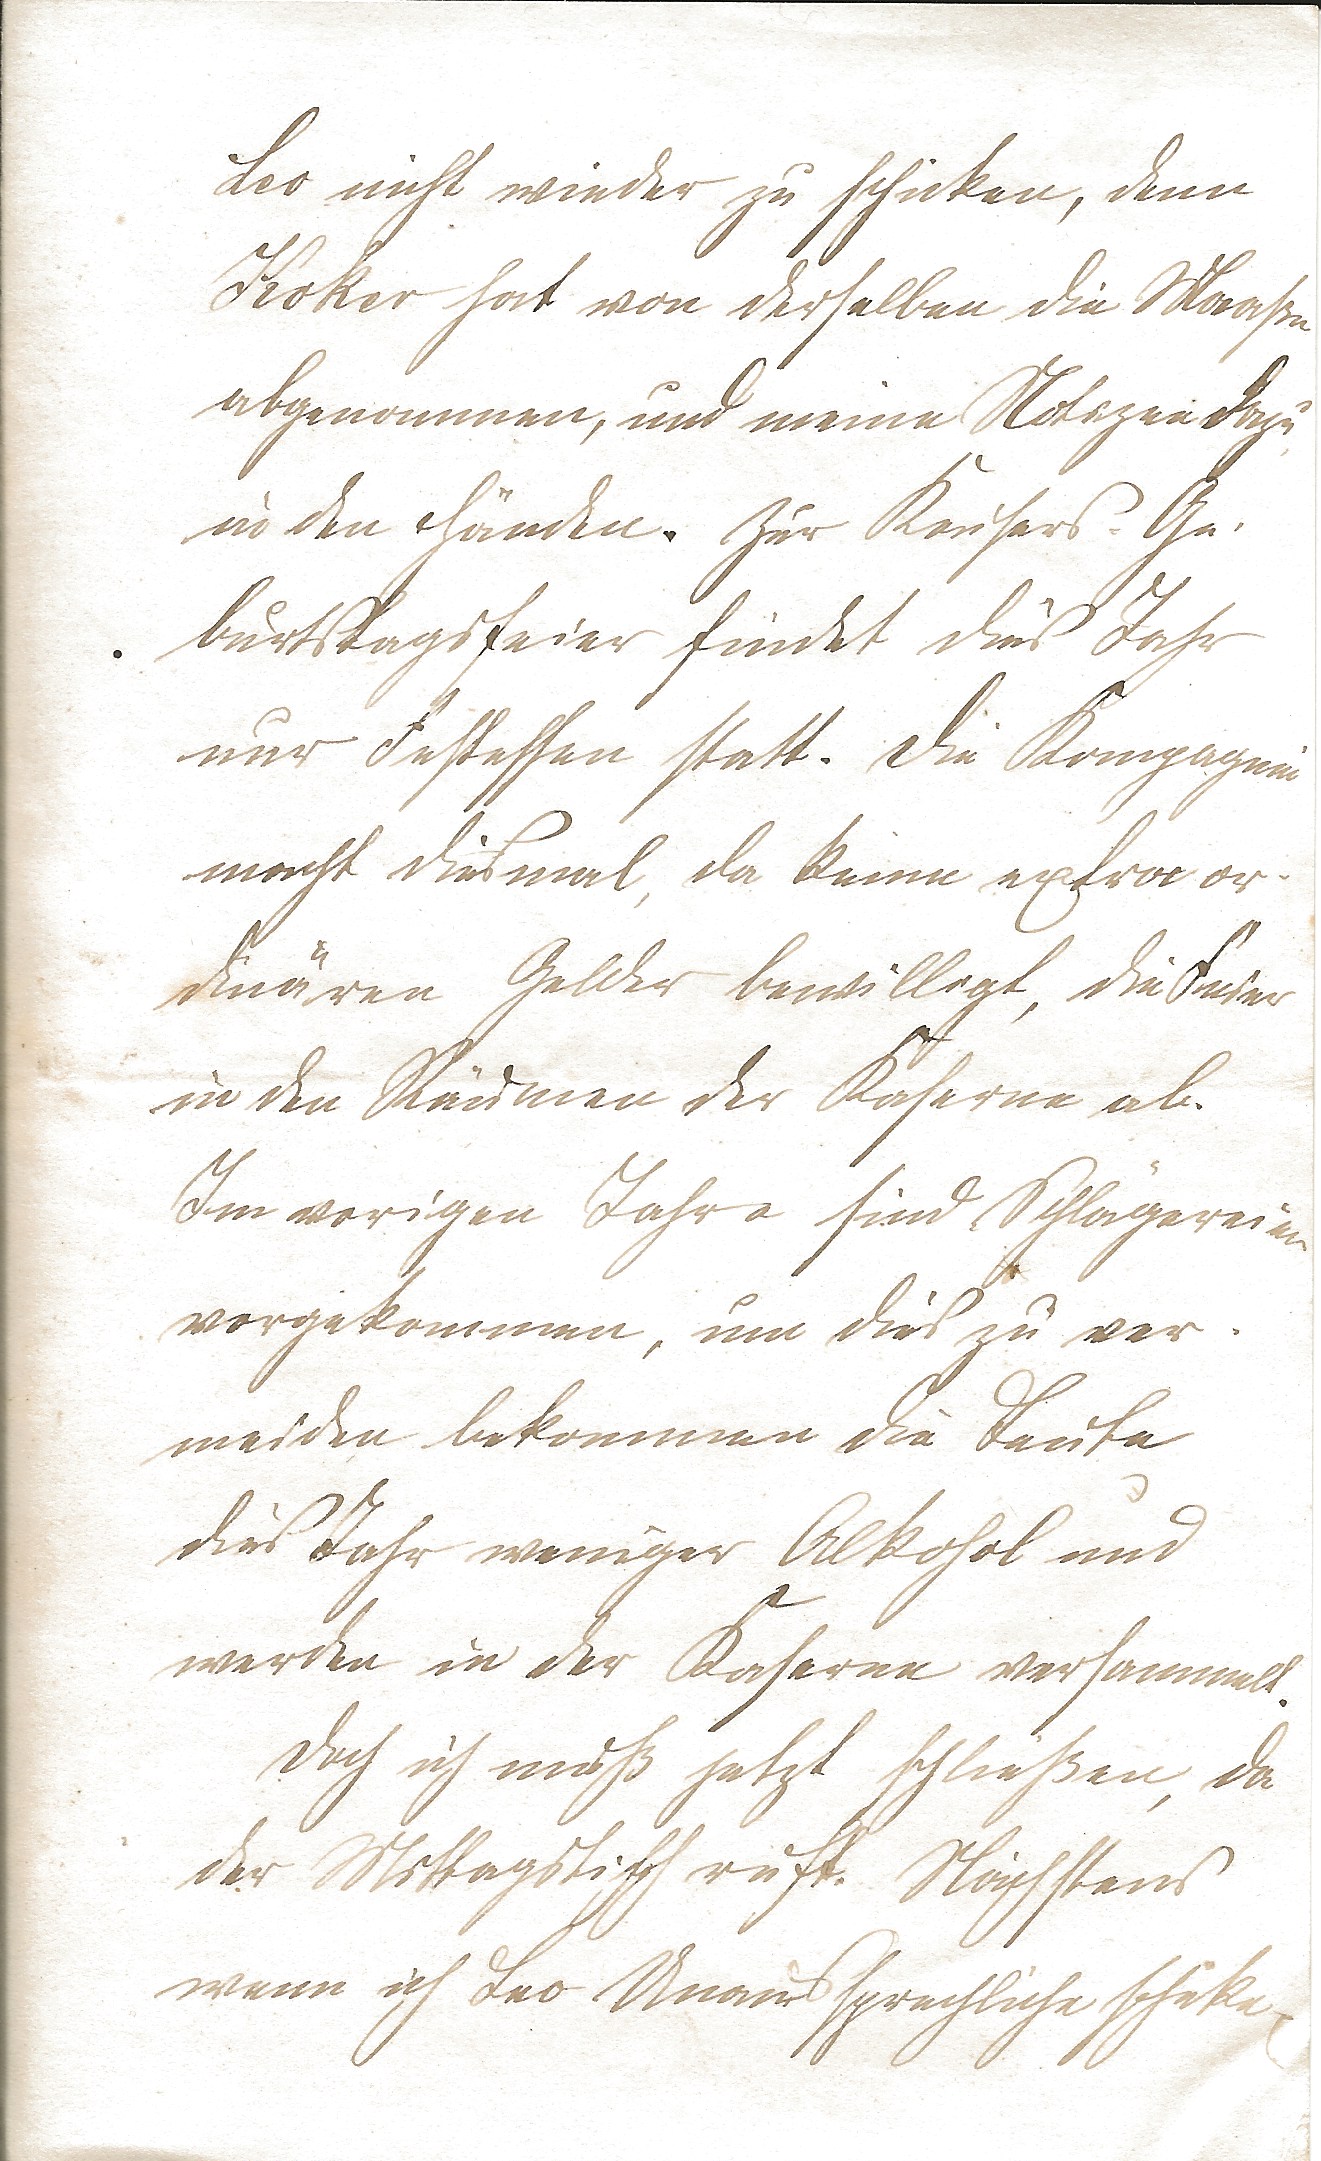 Leo nicht wieder zu schicken, denn
Kröker hat von derselben die Maaße
abgenommen, und meine Notizen dazu
in den Händen. Zur Kaisers-Ge-
burtstagsfeier findet dies Jahr
nur Festessen statt. Die Kompagnie
macht diesmal, da keine extraor-
dinären Gelder bewilligt, die Feier
in den Räumen der Kaserne ab.
Im vorigen Jahre sind Schlägereien
vorgekommen, um dies zu ver-
meiden bekommen die Leute
dies Jahr weniger Alkohol und
werden in der Kaserne versammelt.
Doch ich muß jetzt schließen, da
der Mittagstisch ruft. Nächstens
wenn ich Leo Unaussprechliche schicke,